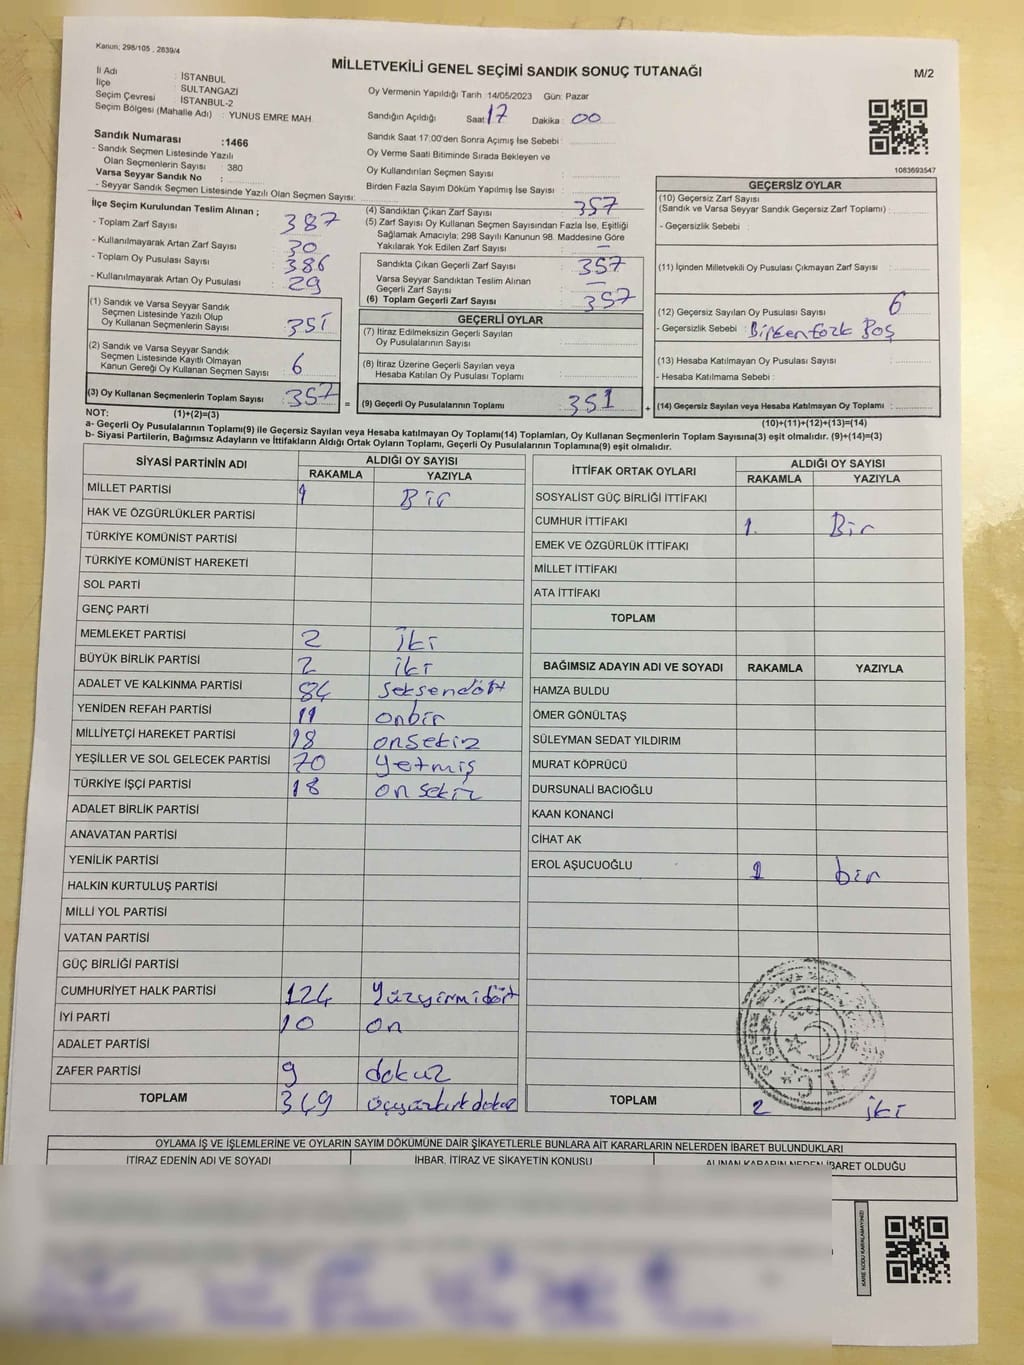 Kanun; 298/105 , 2839/4
MİLLETVEKİLİ GENEL SEÇİMİ SANDIK SONUÇ TUTANAĞI
M/2
İl Adı : İSTANBUL
İlçe : SULTANGAZİ
Seçim Çevresi : İSTANBUL-2
Seçim Bölgesi (Mahalle Adı) : YUNUS EMRE MAH.
Oy Vermenin Yapıldığı Tarih :14/05/2023 Gün: Pazar
Sandığın Açıldığı Saat : 17 Dakika : 00
Sandık Saat 17:00'den Sonra Açımış İse Sebebi :
Oy Verme Saati Bitiminde Sırada Bekleyen ve
Oy Kullandırılan Seçmen Sayısı :
Birden Fazla Sayım Döküm Yapılmış İse Sayısı :
1083693547
Sandık Numarası :1466
- Sandık Seçmen Listesinde Yazılı
Olan Seçmenlerin Sayısı : 380
Varsa Seyyar Sandık No :
- Seyyar Sandık Seçmen Listesinde Yazılı Olan Seçmen Sayısı:
İlçe Seçim Kurulundan Teslim Alınan ;
- Toplam Zarf Sayısı : 387
- Kullanılmayarak Artan Zarf Sayısı : 30
- Toplam Oy Pusulası Sayısı : 386
- Kullanılmayarak Artan Oy Pusulası : 29
(1) Sandık ve Varsa Seyyar Sandık
Seçmen Listesinde Yazılı Olup
Oy Kullanan Seçmenlerin Sayısı : 351
(2) Sandık ve Varsa Seyyar Sandık
Seçmen Listesinde Kayıtlı Olmayan
Kanun Gereği Oy Kullanan Seçmen Sayısı : 6
(3) Oy Kullanan Seçmenlerin Toplam Sayısı : 357 =
(4) Sandıktan Çıkan Zarf Sayısı : 357
(5) Zarf Sayısı Oy Kullanan Seçmen Sayısından Fazla İse, Eşitliği
Sağlamak Amacıyla; 298 Sayılı Kanunun 98. Maddesine Göre
Yakılarak Yok Edilen Zarf Sayısı : —
Sandıkta Çıkan Geçerli Zarf Sayısı : 357
Varsa Seyyar Sandıktan Teslim Alınan
Geçerli Zarf Sayısı : —
(6) Toplam Geçerli Zarf Sayısı : 357
GEÇERLİ OYLAR
(7) İtiraz Edilmeksizin Geçerli Sayılan
Oy Pusulalarının Sayısı :
(8) İtiraz Üzerine Geçerli Sayılan veya
Hesaba Katılan Oy Pusulası Toplamı :
(9) Geçerli Oy Pusulalarının Toplamı : 351 +
GEÇERSİZ OYLAR
(10) Geçersiz Zarf Sayısı
(Sandık ve Varsa Seyyar Sandık Geçersiz Zarf Toplamı) :
- Geçersizlik Sebebi :
(11) İçinden Milletvekili Oy Pusulası Çıkmayan Zarf Sayısı :
(12) Geçersiz Sayılan Oy Pusulası Sayısı : 6
- Geçersizlik Sebebi : Birden fazla Boş
(13) Hesaba Katılmayan Oy Pusulası Sayısı :
- Hesaba Katılmama Sebebi :
(14) Geçersiz Sayılan veya Hesaba Katılmayan Oy Toplamı :
NOT: (1)+(2)=(3)
(10)+(11)+(12)+(13)=(14)
a- Geçerli Oy Pusulalarının Toplamı(9) ile Geçersiz Sayılan veya Hesaba katılmayan Oy Toplamı(14) Toplamları, Oy Kullanan Seçmenlerin Toplam Sayısına(3) eşit olmalıdır. (9)+(14)=(3)
b- Siyasi Partilerin, Bağımsız Adayların ve İttifakların Aldığı Ortak Oyların Toplamı, Geçerli Oy Pusulalarının Toplamına(9) eşit olmalıdır.
SİYASİ PARTİNİN ADI ALDIĞI OY SAYISI
RAKAMLA YAZIYLA
MİLLET PARTİSİ 1 Bir
HAK VE ÖZGÜRLÜKLER PARTİSİ
TÜRKİYE KOMÜNİST PARTİSİ
TÜRKİYE KOMÜNİST HAREKETİ
SOL PARTİ
GENÇ PARTİ
MEMLEKET PARTİSİ 2 iki
BÜYÜK BİRLİK PARTİSİ 2 iki
ADALET VE KALKINMA PARTİSİ 84 seksendört
YENİDEN REFAH PARTİSİ 11 onbir
MİLLİYETÇİ HAREKET PARTİSİ 18 onsekiz
YEŞİLLER VE SOL GELECEK PARTİSİ 70 yetmiş
TÜRKİYE İŞÇİ PARTİSİ 18 on sekiz
ADALET BİRLİK PARTİSİ
ANAVATAN PARTİSİ
YENİLİK PARTİSİ
HALKIN KURTULUŞ PARTİSİ
MİLLİ YOL PARTİSİ
VATAN PARTİSİ
GÜÇ BİRLİĞİ PARTİSİ
CUMHURİYET HALK PARTİSİ 124 yüzyirmidört
İYİ PARTİ 10 on
ADALET PARTİSİ
ZAFER PARTİSİ 9 dokuz
TOPLAM 349 üçyüzkırkdokuz
İTTİFAK ORTAK OYLARI ALDIĞI OY SAYISI
RAKAMLA YAZIYLA
SOSYALİST GÜÇ BİRLİĞİ İTTİFAKI
CUMHUR İTTİFAKI 1 Bir
EMEK VE ÖZGÜRLÜK İTTİFAKI
MİLLET İTTİFAKI
ATA İTTİFAKI
TOPLAM
BAĞIMSIZ ADAYIN ADI VE SOYADI RAKAMLA YAZIYLA
HAMZA BULDU
ÖMER GÖNÜLTAŞ
SÜLEYMAN SEDAT YILDIRIM
MURAT KÖPRÜCÜ
DURSUNALİ BACIOĞLU
KAAN KONANCİ
CİHAT AK
EROL AŞUCUOĞLU 1 bir
TOPLAM 2 iki
OYLAMA İŞ VE İŞLEMLERİNE VE OYLARIN SAYIM DÖKÜMÜNE DAİR ŞİKAYETLERLE BUNLARA AİT KARARLARIN NELERDEN İBARET BULUNDUKLARI
İTİRAZ EDENİN ADI VE SOYADI İHBAR, İTİRAZ VE ŞİKAYETİN KONUSU ALINAN KARARIN NEDEN İBARET OLDUĞU
KARE KODU KARALAMAYINIZ!